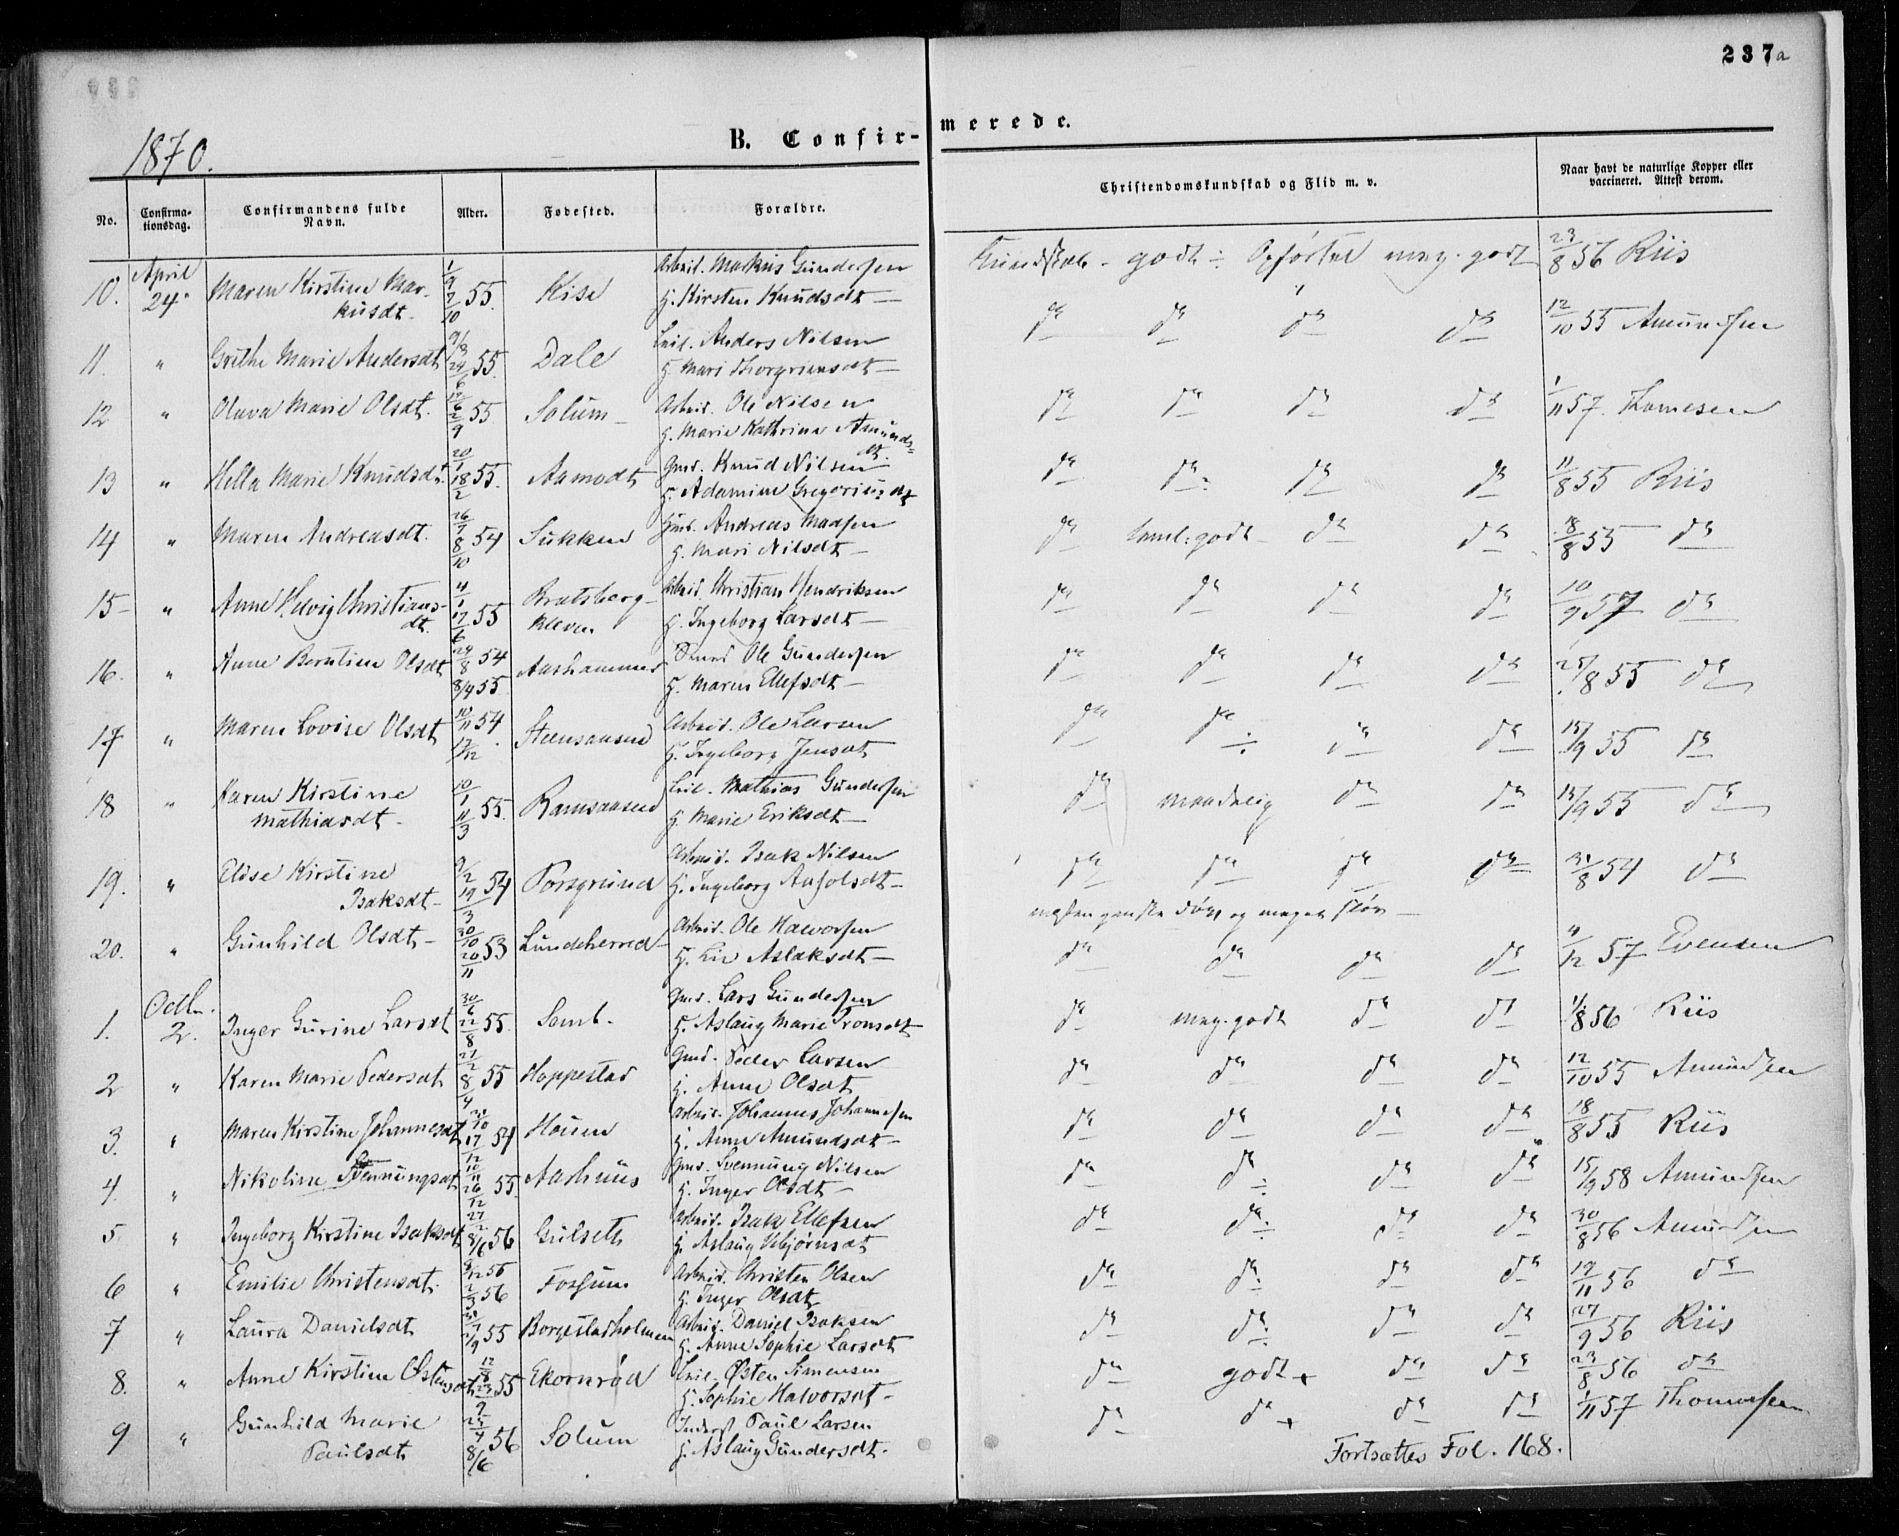 237a
1870.
B. Confir-merede.
No. Confirma-tionsdag. Confirmandens fulde Navn. Alder. Fødested. Forældre. Christendomskundskab og Flid m. v. Naar havt de naturlige Kopper eller vaccineret. Attest derom.
10. April 24. Maren Kirstine Mar- 55. Kise Arbeid. Markus Gundersen Kundskab - godt ÷ Opførsel meg. godt 23/8 56 Riis
kusdt. H. Kirsten Knudsdt
11. " Grethe Marie Andersdt 55. Dale Leil. Anders Nilsen d° d° d° d° 12/10 55 Amundsen
H. Mari Thorgrimsdt
12 " Olava Marie Olsdt. 55. Solum Arbeid. Ole Nilsen d° d° d° d° 1/11 57. Thomesen
H. Marie Kathrine Amunds-
dt.
13 " Hella Marie Knudsdt. 20/1 18/2 55. Aamodt Gmd. Knud Nilsen d° d° d° d° 11/8 55 Riis
H. Adamine Gregoriusdt
14 " Maren Andreasdt. 8/10 54 Andreas Madsen d° Saml: godt d° d° 18/8 55 d°
H. Mari Nilsdt
15 " Anne Helvig Christians- 17/6 55 Bratsberg- Arbeid. Christian Hendriksen d° d° d° d° 10/9 57 d°
dt. kleven H. Ingeborg Larsdt
16. " Anne Berntine Olsdt 29/8 54 Aashammer Ole Gundersen d° d° d° d° 25/8 55 d°
8/4 55. H. Maren Ellefsdt
17 " Maren Lovise Olsdt 10/11 54 Steensaasen Arbeid. Ole Larsen d° d° d° d° 15/9 55 d°
17/12. H. Ingeborg Jensdt
18 " Karen Kirstine 10/1 55. Ramsaasen Leil. Mathias Gundersen d° maadelig d° d° 15/9 55 d°
Mathiasdt. 11/3 H. Marie Eriksdt
19. " Elise Kirstine 9/2 54 Porsgrund Arbeid. Isak Nilsen d° d° d° d° 31/8 54 d°
Isaksdt 19/3 H. Ingeborg Aasolsdt næsten ganske døv og meget sløv
20. " Gunhild Olsdt 30/10 20/11 53 Lundeherred Arbeid. Ole Halvorsen d° d° d° d° 4/12 57 Evensen
H. Liv Aslaksdt
1. Octbr. 2. Inger Gurine Larsdt 30/6 22/8 55. Semb. Gmd. Lars Gundersen d° meg. godt d° d° 1/8 56 Riis
H. Aslaug Marie Tronsdt
2 " Karen Marie Pedersdt 27/2 8/4 55 Hoppestad Gmd. Peder Larsen d° d° d° d° 12/10 55 Amundsen
H. Anne Olsdt
3. " Maren Kirstine Johannesdt 17/12 54 Houen Arbeid. Johannes Johannesen d° d° d° d° 18/8 55 Riis
H. Anne Amundsdt
4. " Nikoline Svennungsdt 10/11 26/12 55 Aarhuus Gmd. Svennung Nilsen d° d° d° d° 15/9 58 Amundsen
H. Inger Olsdt
5 " Ingeborg Kirstine Isaksdt 27/2 8/6 56 Gulseth Arbeid. Isak Ellefsen d° d° d° d° 30/8 56 Amundsen
H. Aslaug Vebjørnsdt
6 " Emilie Christensdt. 55 Fossum Arbeid. Christen Olsen d° d° d° d° 19/11 56 d°
2/3 56 H. Inger Olsdt
7 " Laura Danielsdt 55 Borgestadholmen Arbeid. Daniel Isaksen d° d° d° d° 27/9 56 Riis
H. Anne Sophie Larsdt
8. " Anne Kirstine Østensdt 55 Ekornrød Leil. Østen Simensen d° godt d° d° 23/8 56 d°
H. Sophie Halvorsdt
9 " Gunhild Marie 25/4 56 Solum Inderst Paul Larsen d° d° d° d° 1/11 57 Thomesen
Paulsdt 8/6 H. Aslaug Gundersdt.
Fortsættes Fol. 168.